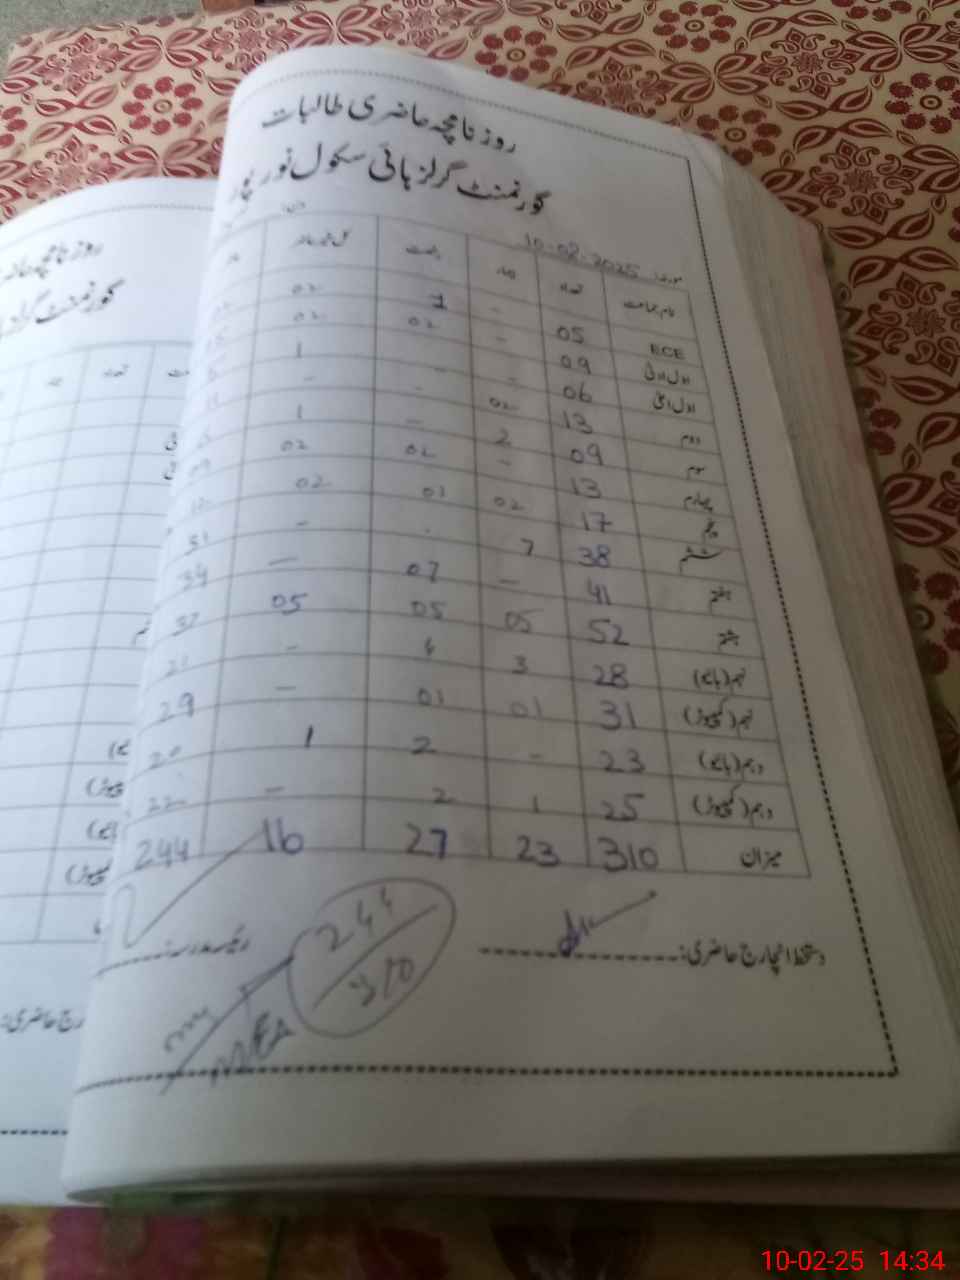 روزنامچہ حاضری طالبات
گورنمنٹ گرلز ہائی سکول نور پور
مورخہ 10-02-2025
نام جماعت تعداد رخصت کل غیر حاضر
ECE 05 - 1 02
اول ادنیٰ 09 - 02 02
اول اعلیٰ 06 - - 1
دوم 13 02 - -
سوم 09 2 - 1
چہارم 13 - 02 02
پنجم 17 02 01 02
ششم 38 7 - - 31
ہفتم 41 - 07 - 34
ہشتم 52 05 05 05 37
نہم (سائنس) 28 3 4 - 21
نہم (کمپیوٹر) 31 01 01 - 29
دہم (سائنس) 23 - 2 1 20
دہم (کمپیوٹر) 25 1 2 - 22
میزان 310 23 27 16 244
دستخط انچارج حاضری: رئیسہ مدرسہ:
244
310
MEA
روزنامچہ حاضر
گورنمنٹ گرلز
تعداد
رج حاضری:
10-02-25 14:34